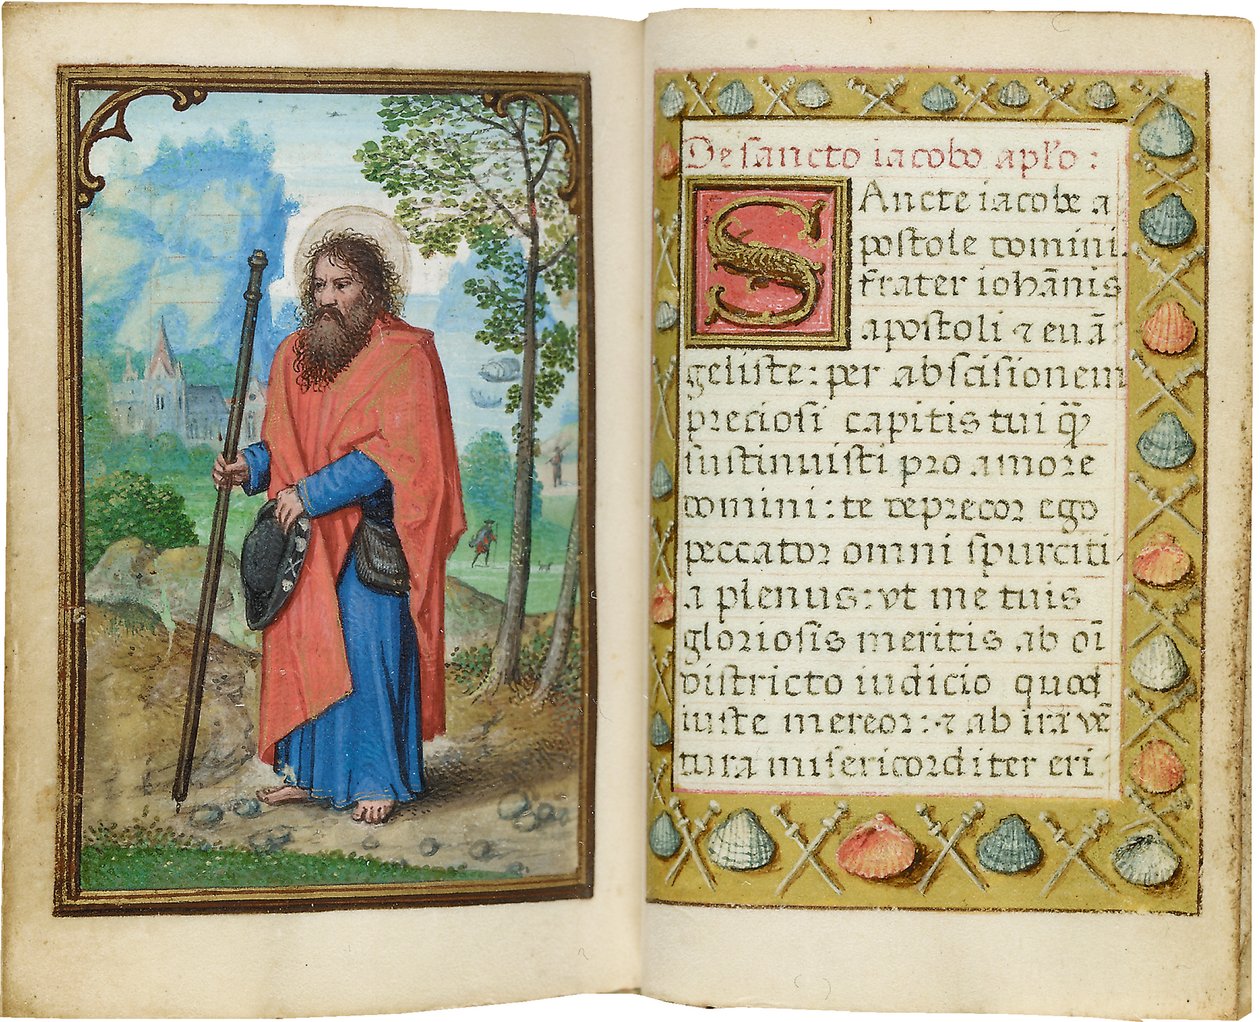 De sancto iacobo aplo:
SAncte iacobe a
postole domini
frater iohānis
apostoli ⁊ euā
geliste: per abscisionem
preciosi capitis tui q̄
sustinuisti pro amore
domini: te deprecor ego
peccator omni spurciti
a plenus: vt me tuis
gloriosis meritis ab oī
districto iudicio quod
iuste mereor: ⁊ ab ira vē
tura misericorditer eri